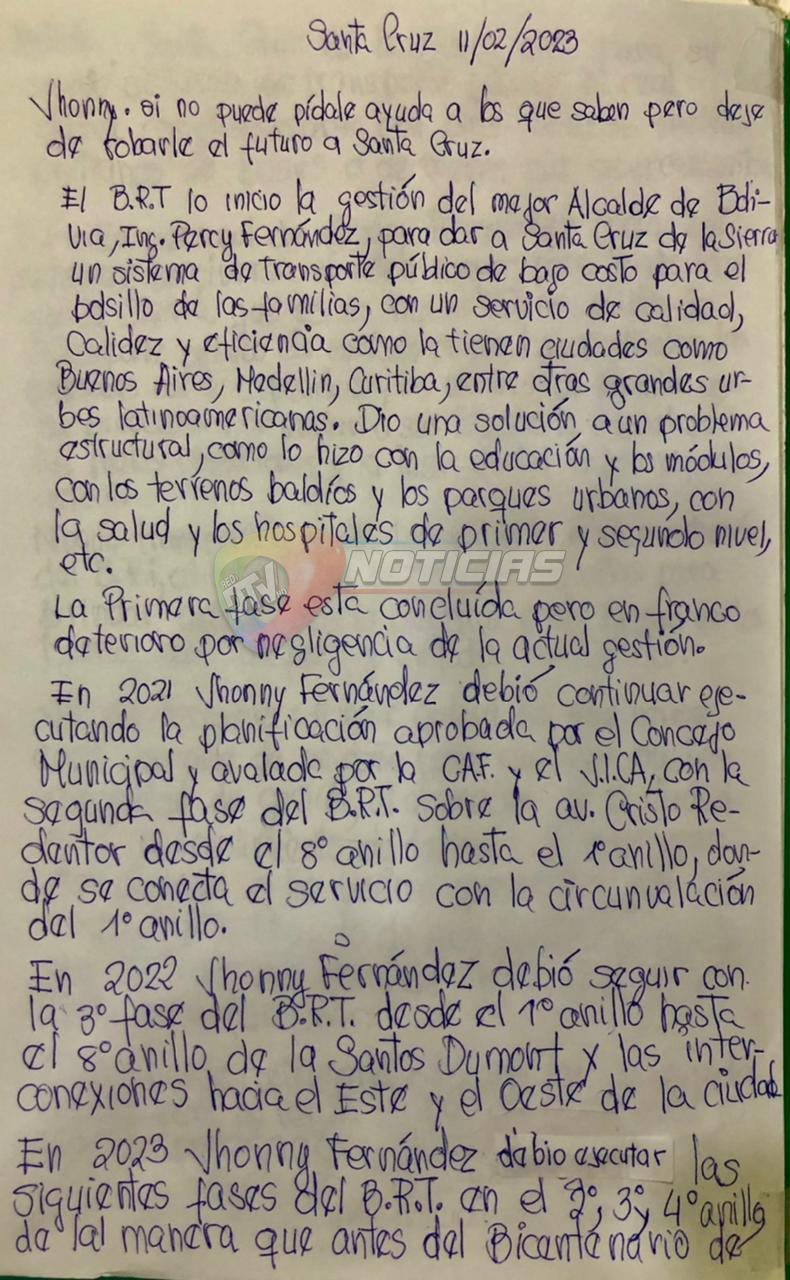 Santa Cruz 11/02/2023
Jhonny. si no puede pídale ayuda a los que saben pero deje
de robarle el futuro a Santa Cruz.
El B.R.T lo inicio la gestión del mejor Alcalde de Boli-
via, Ing. Percy Fernández, para dar a Santa Cruz de la Sierra
un sistema de transporte público de bajo costo para el
bolsillo de las familias, con un servicio de calidad,
Calidez y eficiencia como la tienen ciudades como
Buenos Aires, Medellin, Curitiba, entre otras grandes ur-
bes latinoamericanas. Dio una solución a un problema
estructural, como lo hizo con la educación y los módulos,
con los terrenos baldíos y los parques urbanos, con
la salud y los hospitales de primer y segundo nivel,
etc.
RED UTV NOTICIAS
La Primera fase esta concluída pero en franco
deterioro por negligencia de la actual gestión.
En 2021 Jhonny Fernández debió continuar eje-
cutando la planificación aprobada por el Concejo
Municipal y avalada por la CAF. y el J.I.CA, con la
segunda fase del B.R.T. sobre la av. Cristo Re-
dentor desde el 8° anillo hasta el 1° anillo, don-
de se conecta el servicio con la circunvalación
del 1° anillo.
En 2022 Jhonny Fernández debió seguir con
la 3° fase del B.R.T. desde el 1° anillo hasta
el 8° anillo de la Santos Dumont y las inter-
conexiones hacia el Este y el Oeste de la ciudad
En 2023 Jhonny Fernández debio ejecutar las
siguientes fases del B.R.T. en el 2°, 3° y 4° anillo
de tal manera que antes del Bicentenario de